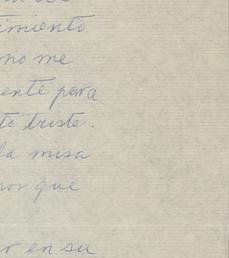 timiento
no me
ente para
to triste.
la misa
por que
r en su